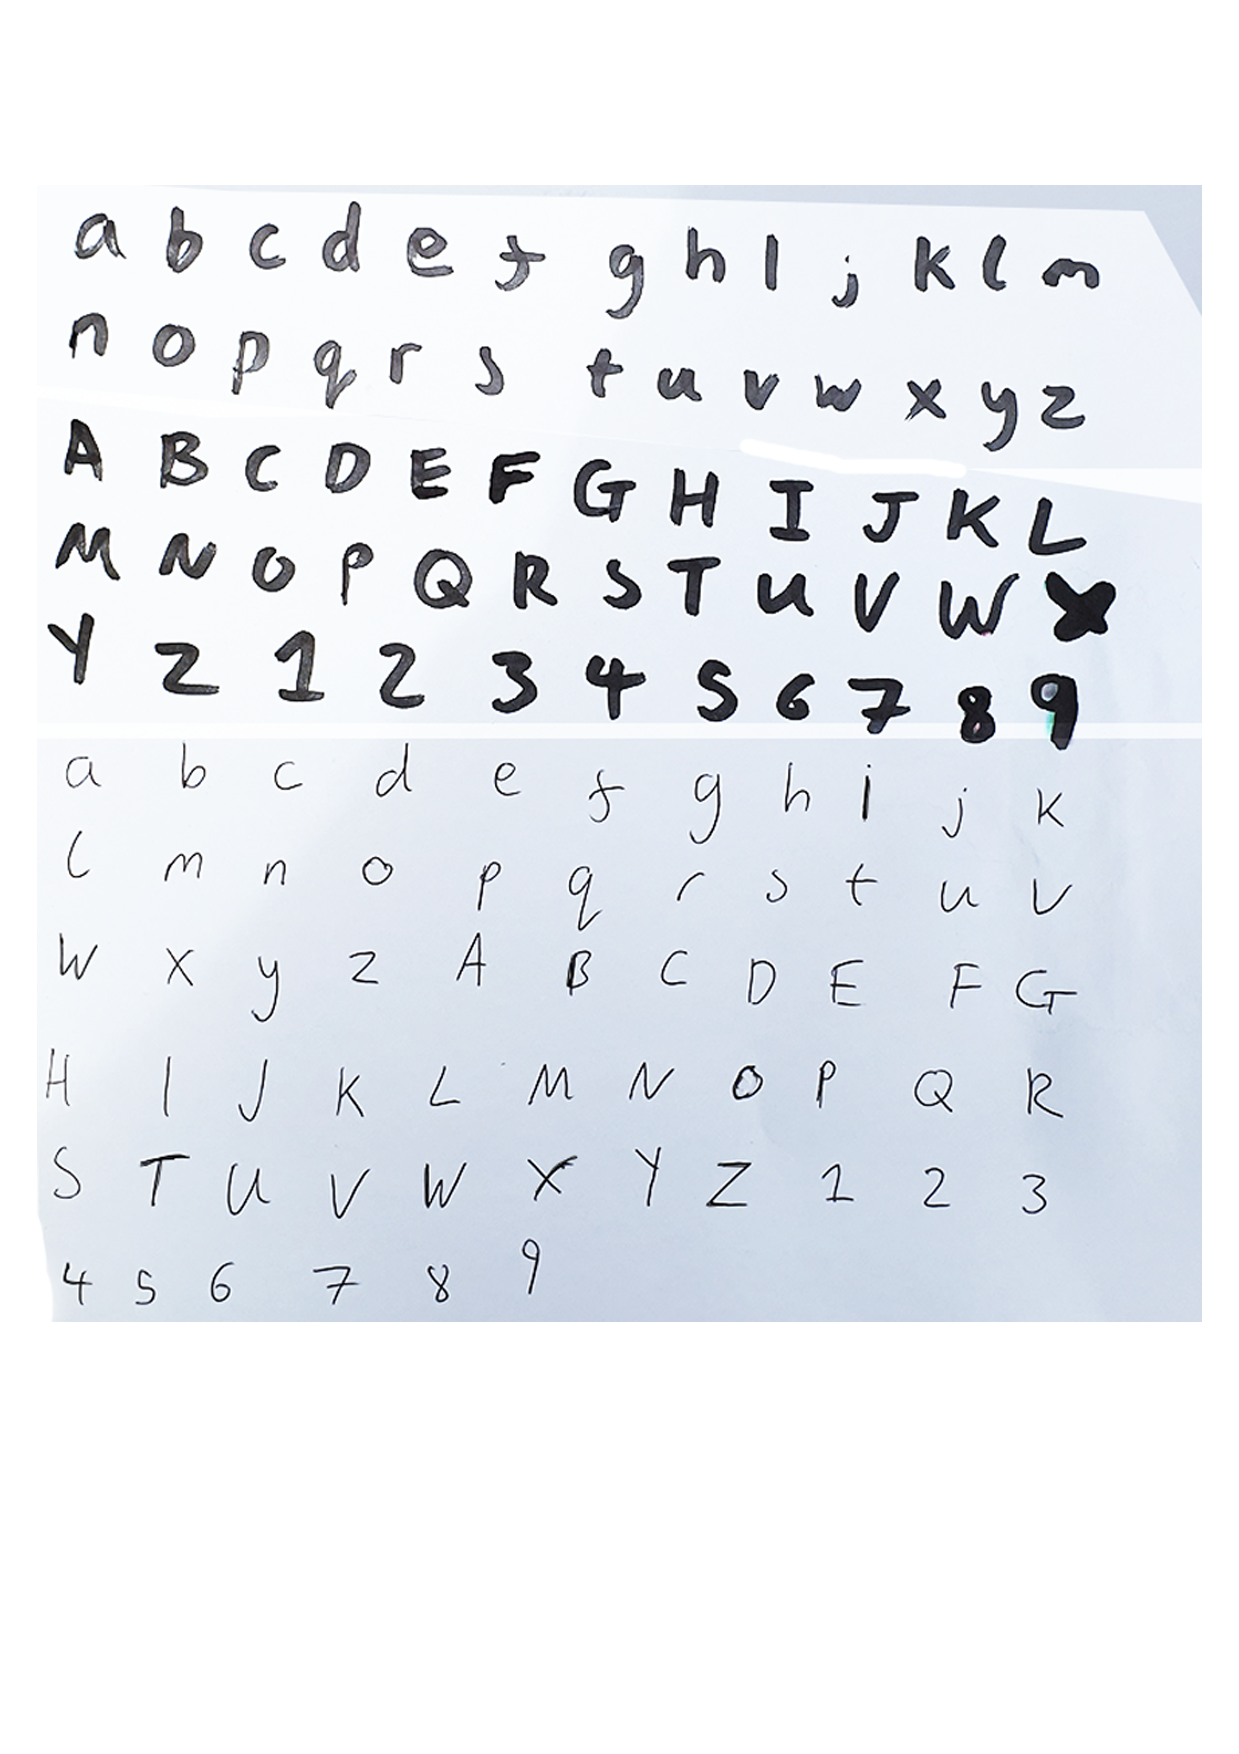 a b c d e f g h l j k l m
n o p q r s t u v w x y z
A B C D E F G H I J K L
M N O P Q R S T U V W X
Y Z 1 2 3 4 5 6 7 8 9
a b c d e f g h i j k
l m n o p q r s t u v
w x y z A B C D E F G
H I J K L M N O P Q R
S T U V W X Y Z 1 2 3
4 5 6 7 8 9